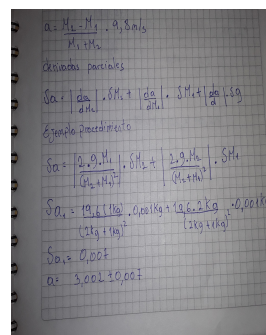 a = M₂ - M₁ / M₁ + M₂ . 9,8 m/s
Derivadas parciales
δa = |da/dM₂| . δM₂ + |da/dM₁| . δM₁ + |da/d| . δg
Ejemplo procedimiento
δa = |2.g.M₁/(M₂+M₁)²| . δM₂ + |2.g.M₂/(M₂+M₁)²| . δM₁
δa₁ = 19,6(1kg)/(2kg+1kg)² . 0,001kg + 19,6.2kg/(2kg+1kg)² . 0,001k
δa₁ = 0,007
a = 3,002 ± 0,007